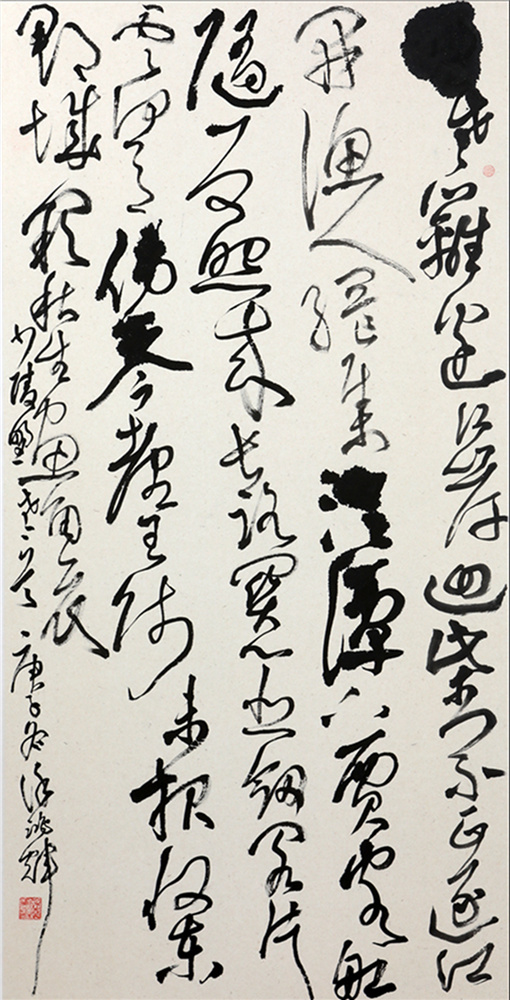 野老籬邊江岸迴柴門不正逐江
開漁人網集澄潭下賈客船
隨返照來長路關心悲劍閣片
雲何意傍琴臺王師未報收東
郡城闕秋生畫角哀
少陵野老 庚子冬